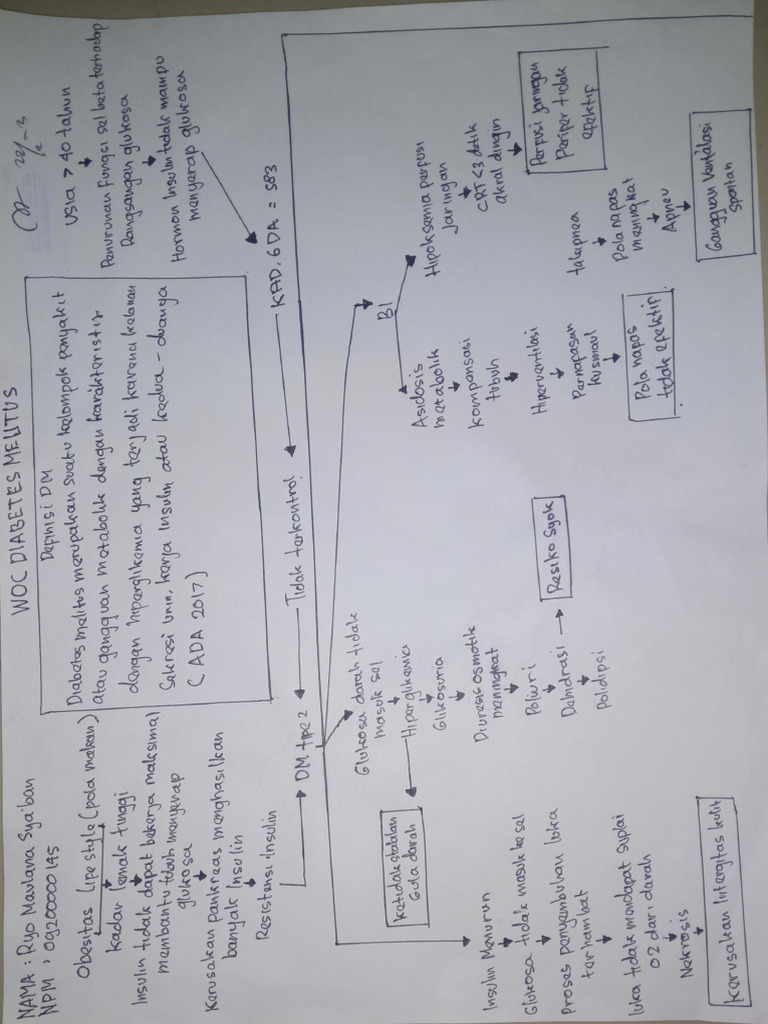 WOC DIABETES MELITUS
NAMA : Riyo Maulana Sya'ban
NPM : 09200000145
Obesitas (lipe style (pola makan)
kadar lemak tinggi
Insulin tidak dapat bekerja maksimal
membantu tubuh menyerap
glukosa
Kerusakan pankreas menghasilkan
banyak Insulin
Resistensi Insulin
Depinisi DM
Diabetes melitus merupakan suatu kelompok penyakit
atau gangguan metabolik dengan karakteristik
dengan hiperglikemia yang terjadi karena kealanan
Sekresi Urin, kerja Insulin atau kedua - duanya
(ADA 2017)
Usia > 40 tahun
Penurunan Fungsi sel beta terhadap
Rangsangan glukosa
Hormon Insulin tidak mampu
menyerap glukosa
KAD, GDA = 583
Tidak terkontrol
DM tipe 2
Insulin Menurun
Glukosa tidak masuk ke sel
Proses penyembuhan luka
terhambat
luka tidak mendapat suplai
O2 dari darah
Nekrosis
Kerusakan Intergitas kulit
Glukosa darah tidak
masuk sel
Hiperglikemia
ketidakstabilan
Gula darah
Glikosuria
Diuresis osmotik
meningkat
Poliuri
Dehidrasi
Resiko Syok
Polidipsi
B1
Asidosis
metabolik
kompensasi
tubuh
Hiperventilasi
Pernapasan
kusmaul
Pola napas
tidak epektip
Hipoksemia perpusi
Jaringan
CRT <3 detik
akral dingin
Perpusi jaringan
Periper tidak
epektip
takipnea
Pola napas
meningkat
Apneu
Gangguan Ventilasi
Spontan